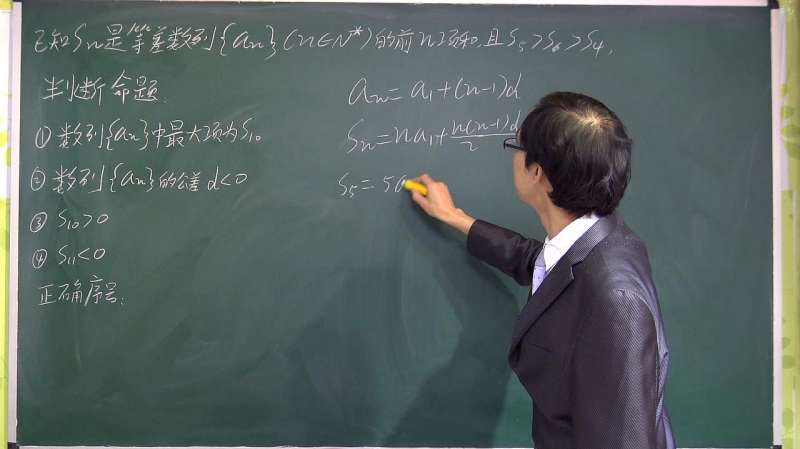 已知Sn是等差数列{an}(n∈N*)的前n项和,且S5>S6>S4,
判断命题:
① 数列{an}中最大项为S10
② 数列{an}的公差d<0
③ S10>0
④ S11<0
正确序号:
an=a1+(n-1)d
Sn=na1+n(n-1)d/2
S5=5a